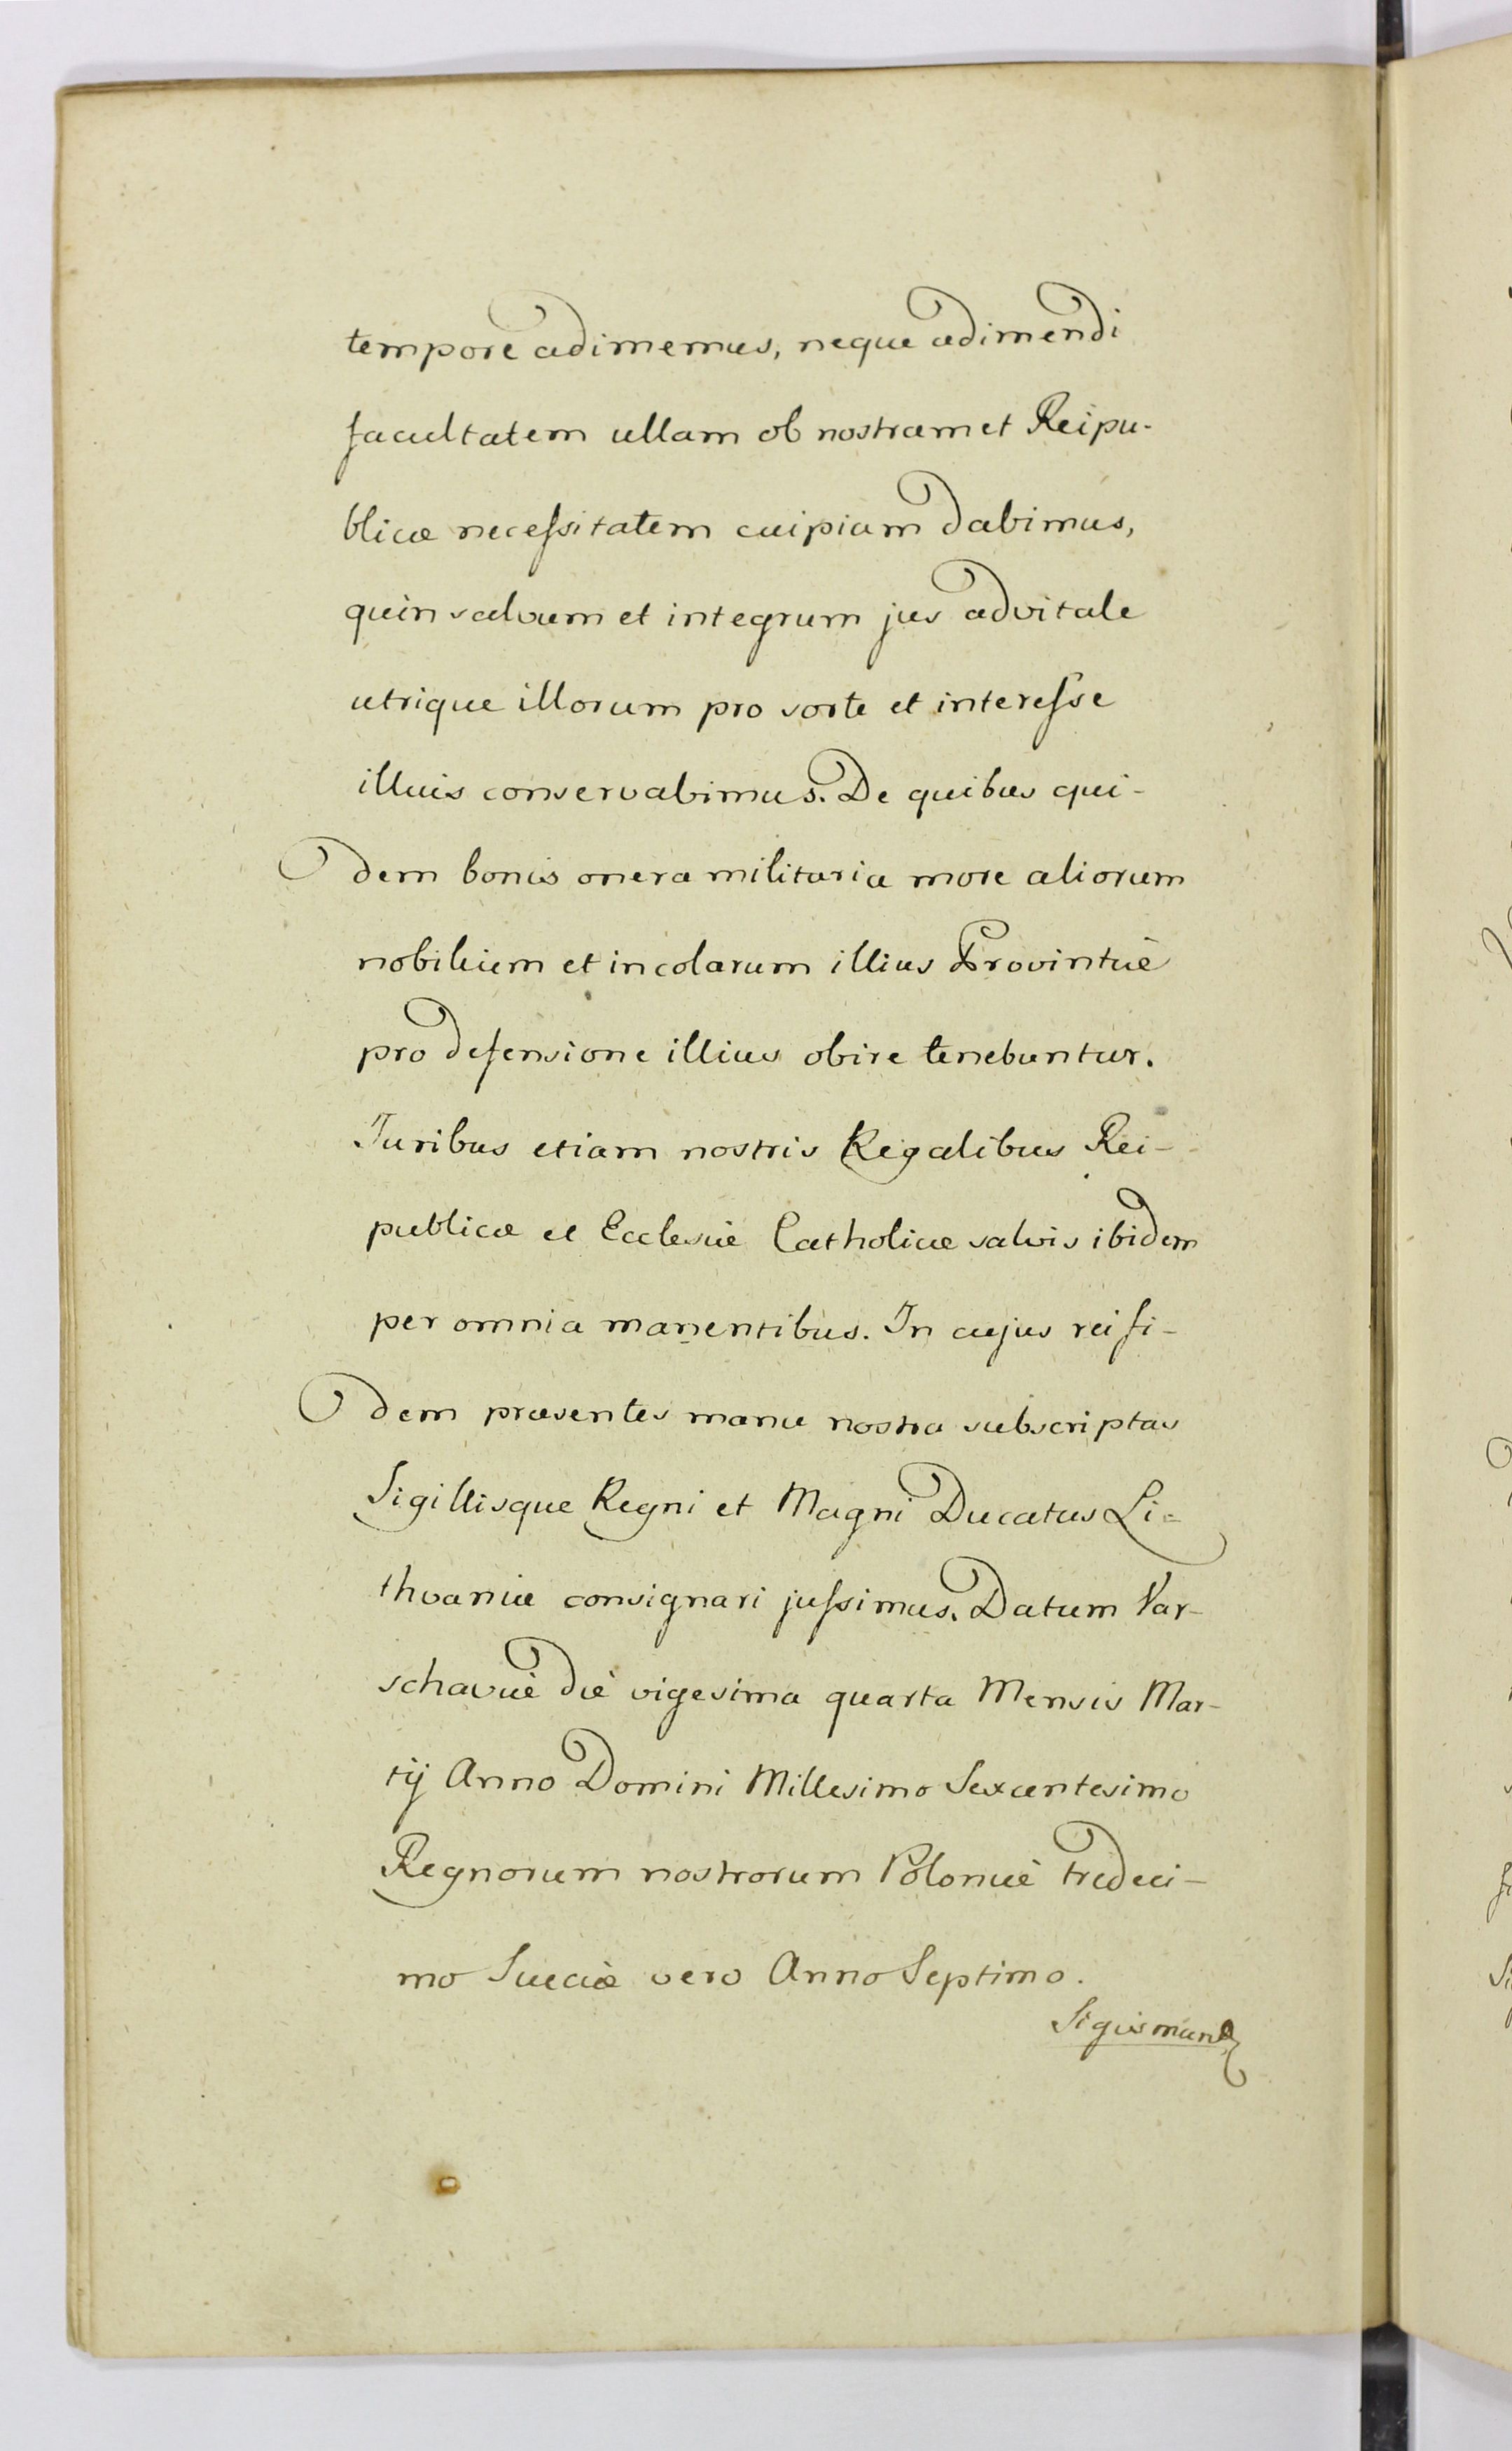 tempore adimemus, neque adimendi
facultatem ullam ob nostram et Reipu-
blicæ necessitatem cuipiam dabimus,
quin salvum et integrum jus advitale
utrique illorum pro sorte et interesse
illius conservabimus. De quibus qui-
dem bonis onera militaria more aliorum
nobilium et incolarum illius Provintiæ
pro defensione illius obire tenebuntur.
Juribus etiam nostris Regalibus Rei-
publicæ et Ecclesiæ Catholicæ salvis ibidem
per omnia manentibus. In cujus rei fi-
dem præsentes manu nostra subscriptas
Sigillisque Regni et Magni Ducatus Li-
thvaniæ consignari jussimus. Datum Var-
schaviæ die vigesima quarta Mensis Mar-
tij Anno Domini Millesimo Sexcentesimo
Regnorum nostrorum Poloniæ tredeci-
mo Sueciæ vero Anno Septimo.
Sigismund